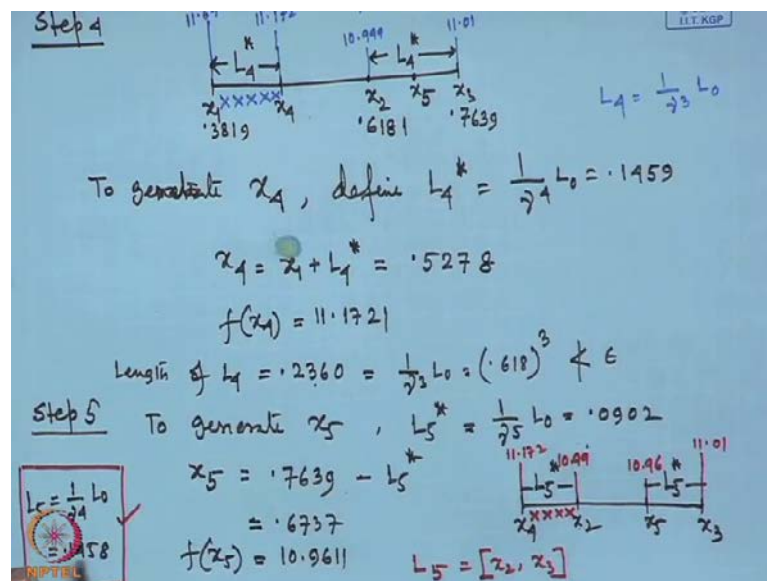 Step 4
11.172
10.949
11.01
I.I.T. KGP
L4*
L4*
x1 xxxxx x4 x2 x5 x3
.3819 .6181 .7639
L4 = 1/γ3 L0
To generate x4, define L4* = 1/γ4 L0 = .1459
x4 = x1 + L4* = .5278
f(x4) = 11.1721
Length of L4 = .2360 = 1/γ3 L0 = (.618)3 ≮ ε
Step 5 To generate x5, L5* = 1/γ5 L0 = .0902
x5 = .7639 - L5*
= .6737
f(x5) = 10.9611
L5 = 1/γ4 L0
= .1458
NPTEL
11.172 10.96 11.01
L5* L5*
x4 xxxx x2 x5 x3
L5 = [x2, x3]